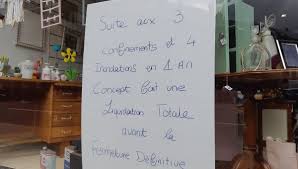 Suite aux 3
confinements et 4
Inondations en 1 An
Concept Fait une
Liquidation Totale
avant la
Fermeture Définitive